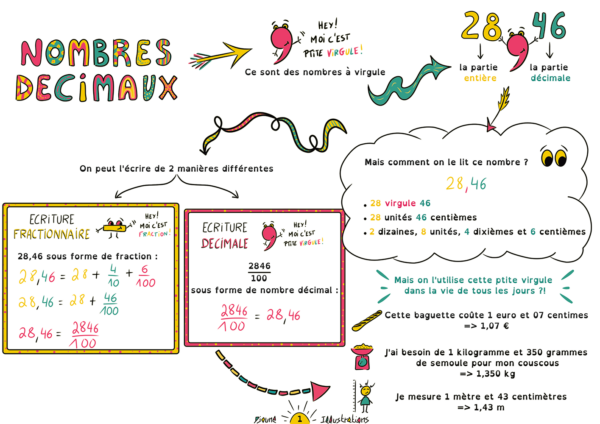 NOMBRES
DECIMAUX
HEY!
MOI C'EST
PTITE VIRGULE!
Ce sont des nombres à virgule
28 46
la partie
entière
la partie
décimale
On peut l'écrire de 2 manières différentes
Mais comment on le lit ce nombre ?
28,46
• 28 virgule 46
• 28 unités 46 centièmes
• 2 dizaines, 8 unités, 4 dixièmes et 6 centièmes
ECRITURE
FRACTIONNAIRE
HEY!
MOI C'EST
FRACTION!
28,46 sous forme de fraction :
28,46 = 28 + 4/10 + 6/100
28,46 = 28 + 46/100
28,46 = 2846/100
ECRITURE
DECIMALE
HEY!
MOI C'EST
PTITE VIRGULE!
2846/100
sous forme de nombre décimal :
2846/100 = 28,46
Mais on l'utilise cette ptite virgule
dans la vie de tous les jours ?!
Cette baguette coûte 1 euro et 07 centimes
=> 1,07 €
J'ai besoin de 1 kilogramme et 350 grammes
de semoule pour mon couscous
=> 1,350 kg
Je mesure 1 mètre et 43 centimètres
=> 1,43 m
1 Illustrations